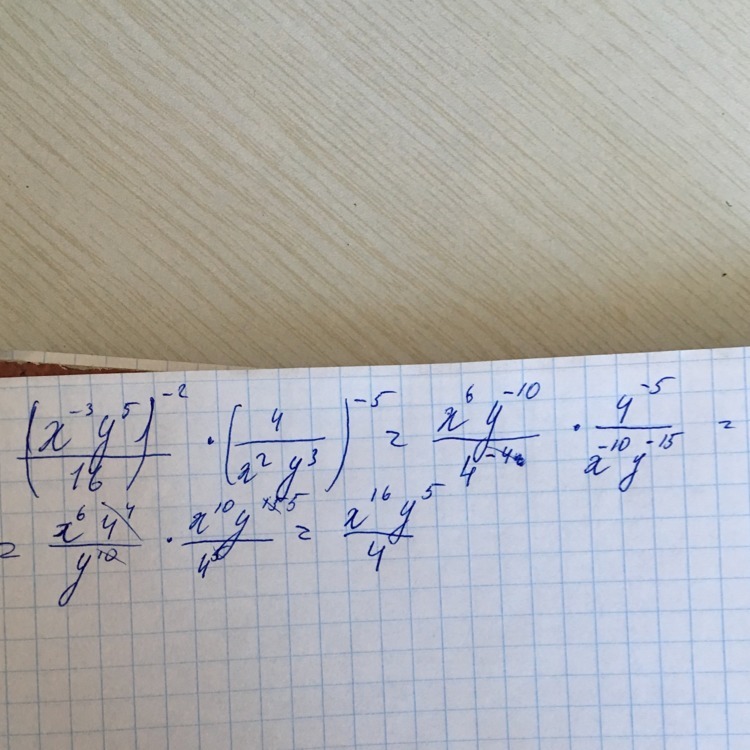 (x⁻³y⁵/16)⁻² · (4/x²y³)⁻⁵ = x⁶y⁻¹⁰/4⁻⁴ · 4⁻⁵/x⁻¹⁰y⁻¹⁵ =
= x⁶4⁴/y¹⁰ · x¹⁰y¹⁵ ⁵/4⁵ = x¹⁶y⁵/4